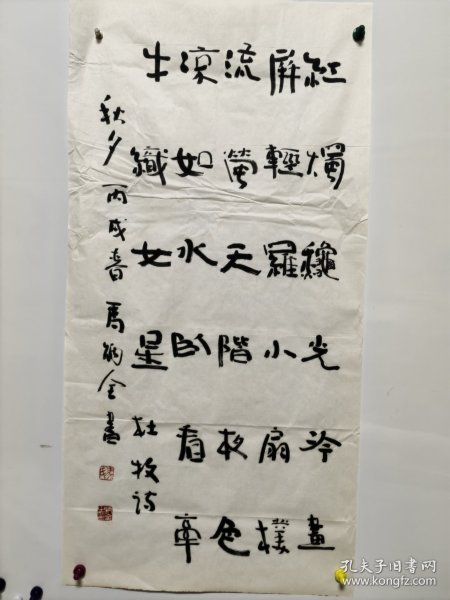 紅燭龝光冷畫
屏輕羅小扇撲
流螢天階夜色
凉如水卧看牽
牛織女星
杜牧诗
秋夕 丙戌春 馬全書
孔夫子旧书网
www.kongfz.com